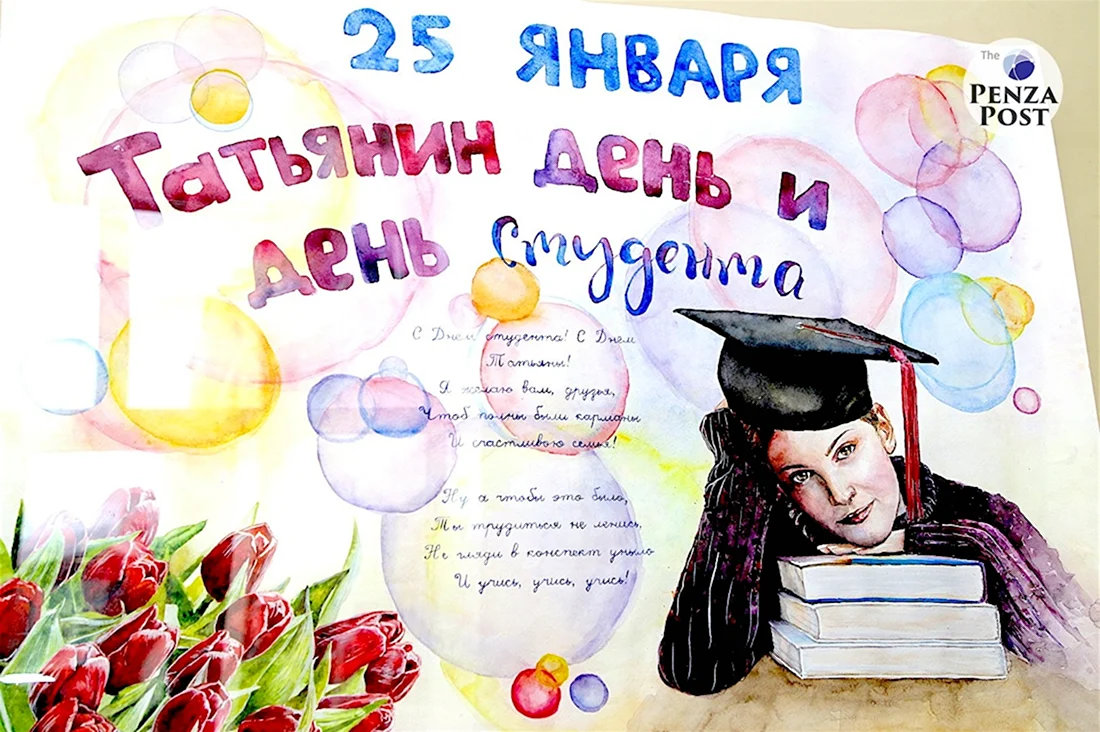 25 ЯНВАРЯ
The
PENZA
POST
Татьянин день и
день студента
С Днём студента! С Днём
Татьяны!
Я желаю вам, друзья,
Чтоб полны были карманы
И счастливою семья!
Ну а чтобы это было,
Ты трудиться не ленись,
Не гляди в конспект уныло
И учись, учись, учись!